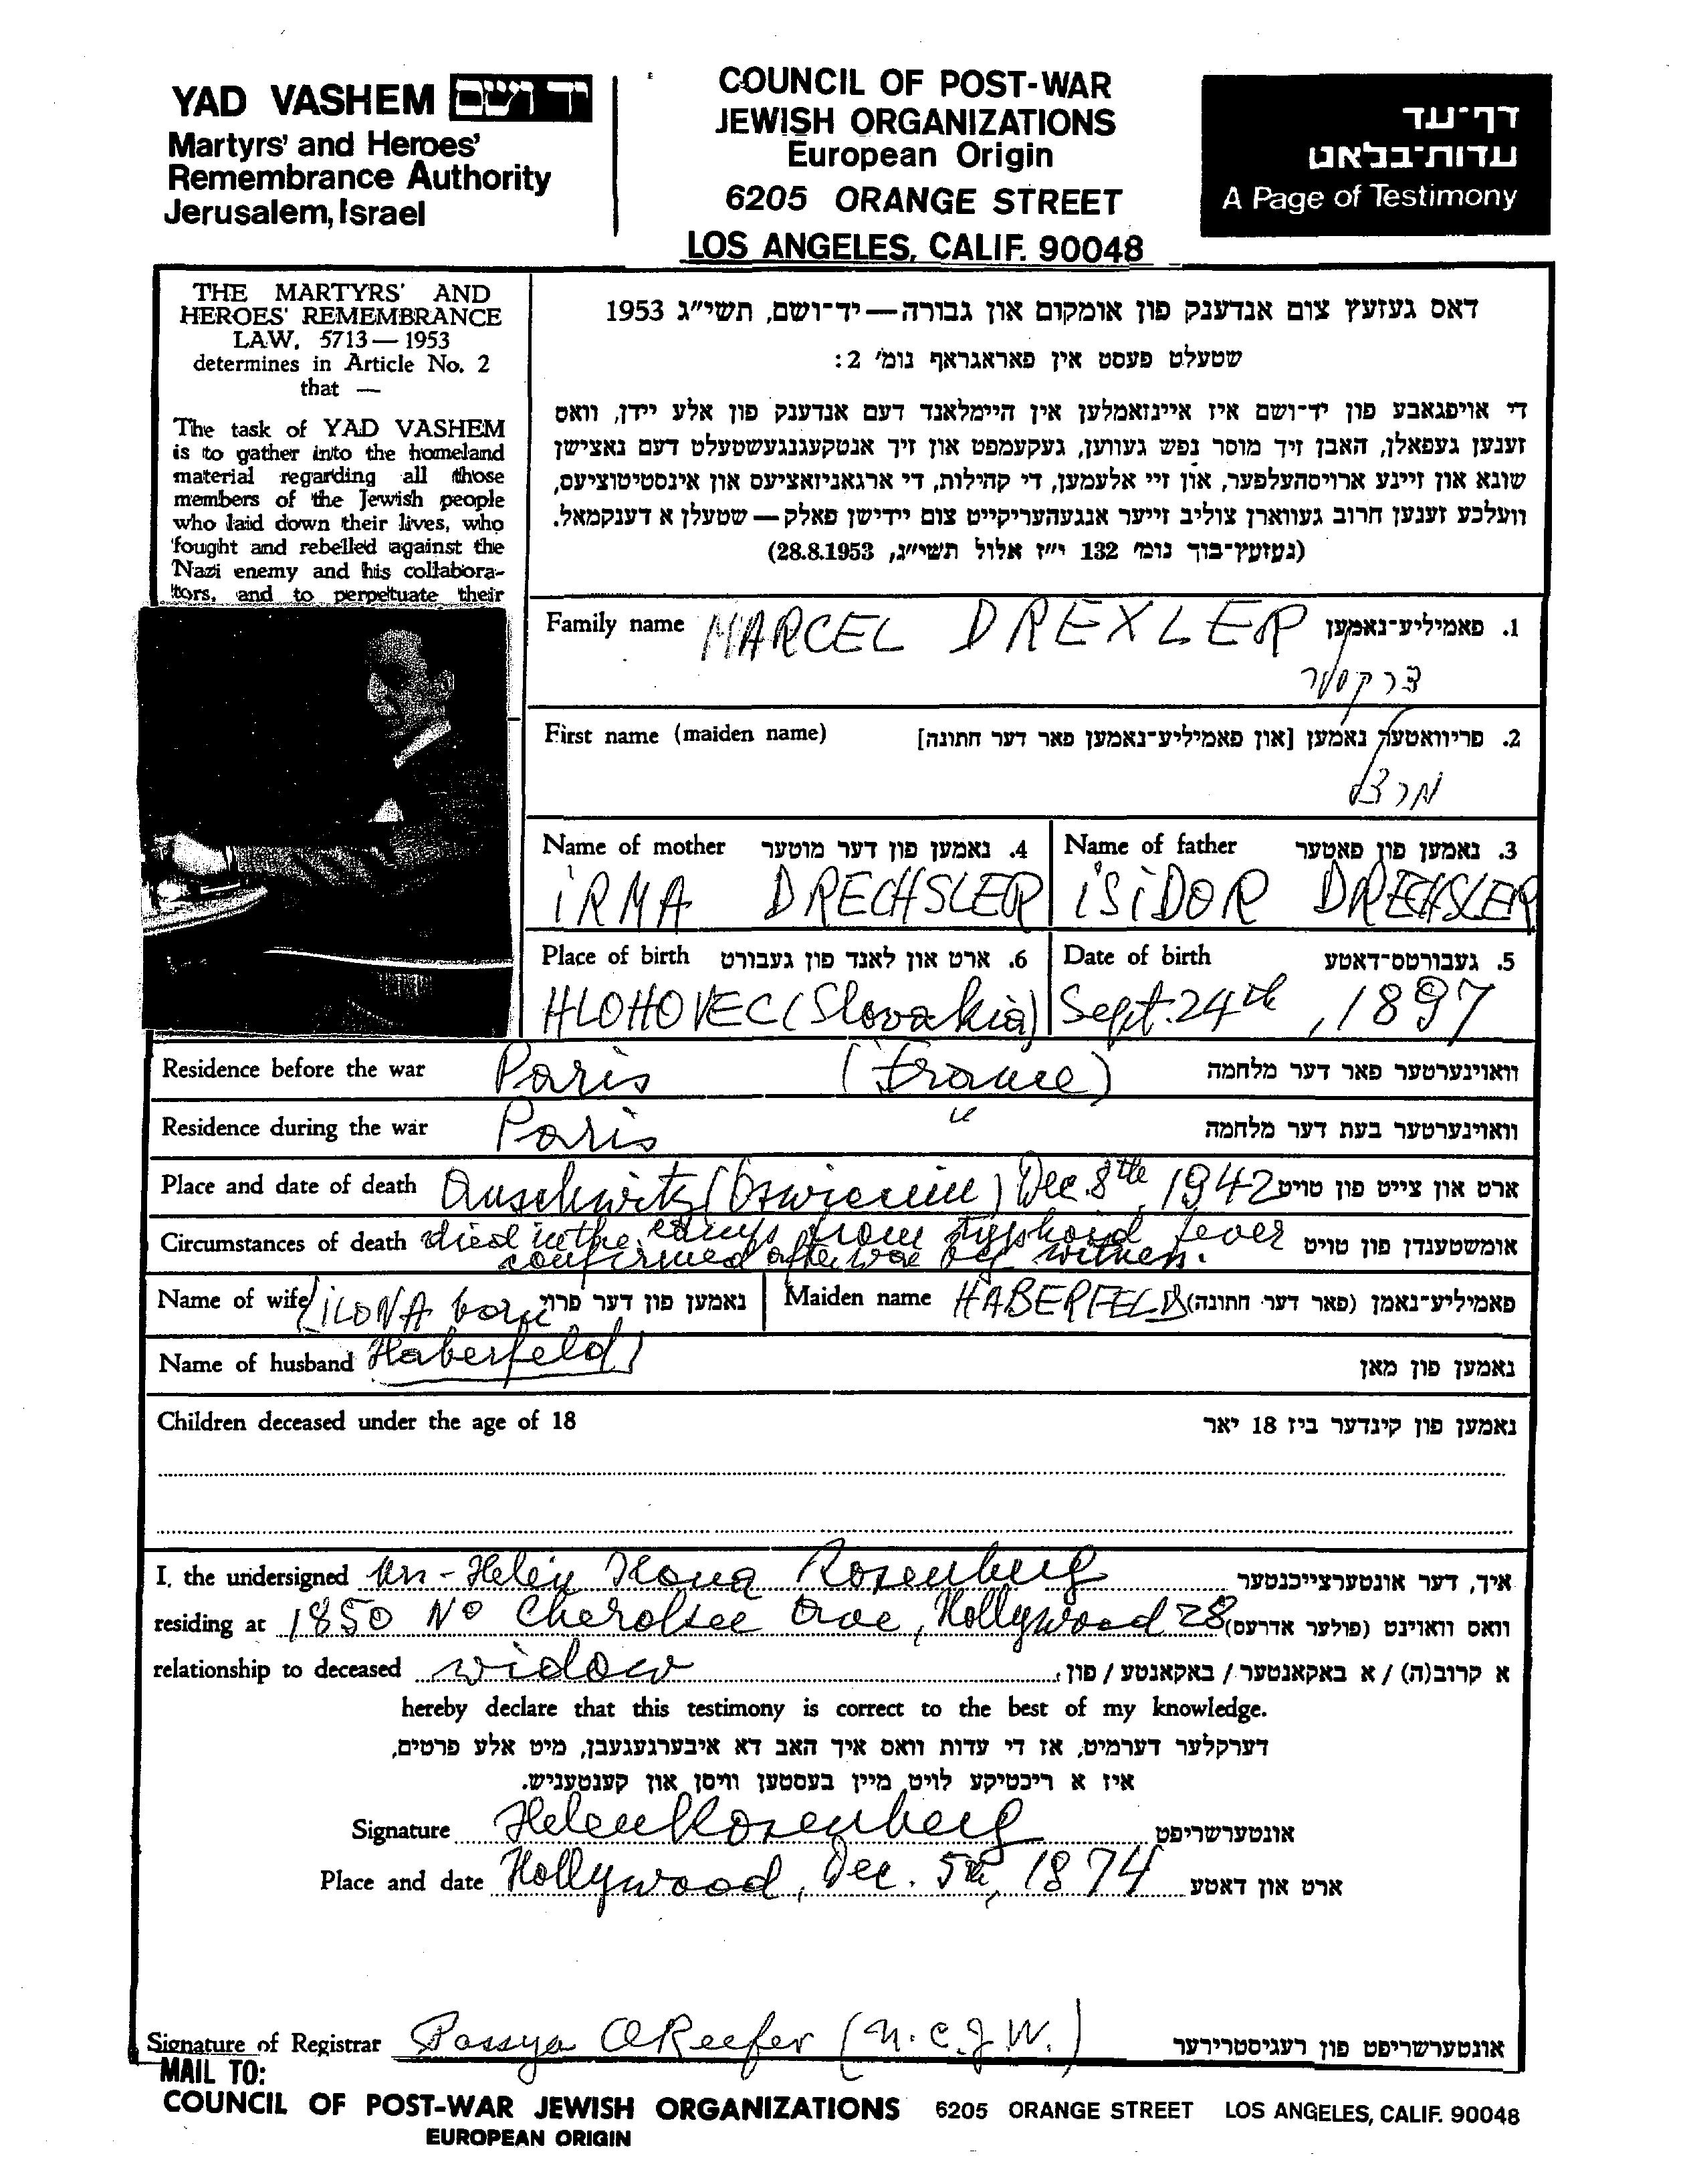 YAD VASHEM יד ושם
Martyrs' and Heroes'
Remembrance Authority
Jerusalem, Israel
COUNCIL OF POST-WAR
JEWISH ORGANIZATIONS
European Origin
6205 ORANGE STREET
LOS ANGELES, CALIF. 90048
דף־עד
עדות־בלאט
A Page of Testimony
THE MARTYRS' AND
HEROES' REMEMBRANCE
LAW, 5713—1953
determines in Article No. 2
that —
The task of YAD VASHEM
is to gather into the homeland
material regarding all those
members of the Jewish people
who laid down their lives, who
fought and rebelled against the
Nazi enemy and his collabora-
tors, and to perpetuate their
דאס געזעץ צום אנדענק פון אומקום און גבורה—יד־ושם, תשי״ג 1953
שטעלט פעסט אין פאראגראף נומ׳ 2:
די אויפגאבע פון יד־ושם איז איינזאמלען אין היימלאנד דעם אנדענק פון אלע יידן, וואס
זענען געפאלן, האבן זיך מוסר נפש געווען, געקעמפט און זיך אנטקעגנגעשטעלט דעם נאצישן
שונא און זיינע ארויסהעלפער, און זיי אלעמען, די קהילות, די ארגאניזאציעס און אינסטיטוציעס,
וועלכע זענען חרוב געווארן צוליב זייער אנגעהעריקייט צום יידישן פאלק—שטעלן א דענקמאל.
(געזעץ־בוך נומ׳ 132 י״ז אלול תשי״ג, 28.8.1953)
Family name MARCEL DREXLER 1. פאמיליע־נאמען
דרקסלר
First name (maiden name) 2. פריוואטער נאמען [און פאמיליע־נאמען פאר דער חתונה]
מרצל
Name of mother 4. נאמען פון דער מוטער Name of father 3. נאמען פון פאטער
IRMA DRECHSLER ISIDOR DRECHSLER
Place of birth 6. ארט און לאנד פון געבורט Date of birth 5. געבורטס־דאטע
HLOHOVEC (Slovakia) Sept. 24th, 1897
Residence before the war Paris (France) וואוינערטער פאר דער מלחמה
Residence during the war Paris " וואוינערטער בעת דער מלחמה
Place and date of death Auschwitz (Oswiecim) Dec. 8th, 1942 ארט און צייט פון טויט
Circumstances of death died in the camp from typhoid fever אומשטענדן פון טויט
confirmed after war by witness.
Name of wife (ILONA born נאמען פון דער פרוי Maiden name HABERFELD פאמיליע־נאמן (פאר דער חתונה)
Name of husband Haberfeld) נאמען פון מאן
Children deceased under the age of 18 נאמען פון קינדער ביז 18 יאר
I, the undersigned Mrs - Helen Ilona Rosenberg איך, דער אונטערצייכנטער
residing at 1850 No Cherokee Ave, Hollywood 28 וואס וואוינט (פולער אדרעס)
relationship to deceased widow א קרוב(ה) / א באקאנטער / באקאנטע / פון
hereby declare that this testimony is correct to the best of my knowledge.
דערקלער דערמיט, אז די עדות וואס איך האב דא איבערגעגעבן, מיט אלע פרטים,
איז א ריכטיקע לויט מיין בעסטען וויסן און קענטעניש.
Signature Helen Rosenberg אונטערשריפט
Place and date Hollywood, Dec. 5th, 1874 ארט און דאטע
Signature of Registrar (N.C.J.W.) אונטערשריפט פון רעגיסטרירער
MAIL TO:
COUNCIL OF POST-WAR JEWISH ORGANIZATIONS 6205 ORANGE STREET LOS ANGELES, CALIF. 90048
EUROPEAN ORIGIN